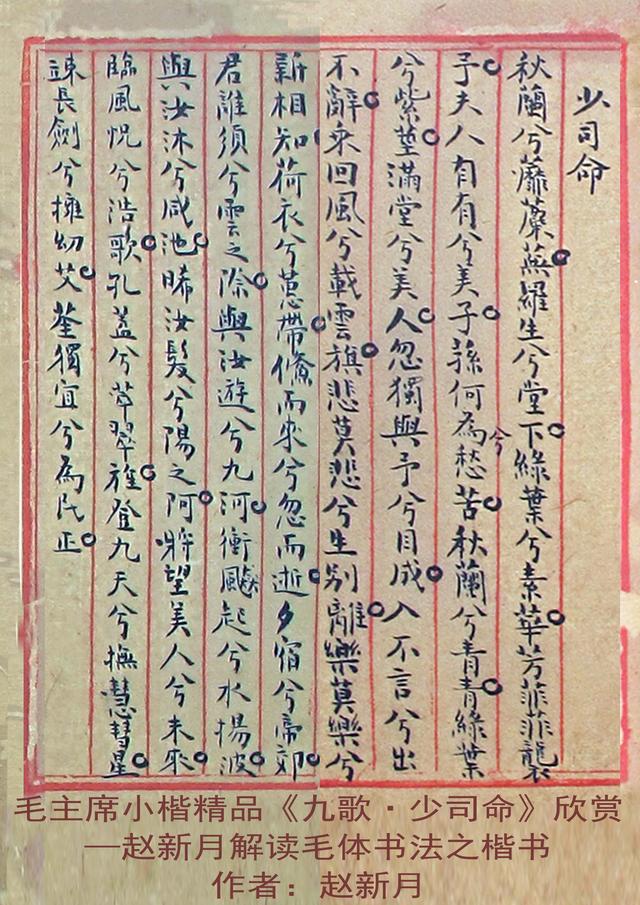 少司命
秋蘭兮蘼蕪羅生兮堂下綠葉兮素華芳菲菲襲
予夫人自有兮美子蓀何為兮愁苦秋蘭兮青青綠葉
兮紫莖滿堂兮美人忽獨與予兮目成入不言兮出
不辭乘回風兮載雲旗悲莫悲兮生別離樂莫樂兮
新相知荷衣兮蕙帶儵而來兮忽而逝夕宿兮帝郊
君誰須兮雲之際與汝遊兮九河衝飈起兮水揚波
與汝沐兮咸池晞汝髮兮陽之阿將望美人兮未來
臨風怳兮浩歌孔蓋兮翠旌登九天兮撫慧彗星
竦長劍兮擁幼艾荃獨宜兮為民正
毛主席小楷精品《九歌·少司命》欣赏
—赵新月解读毛体书法之楷书
作者：赵新月